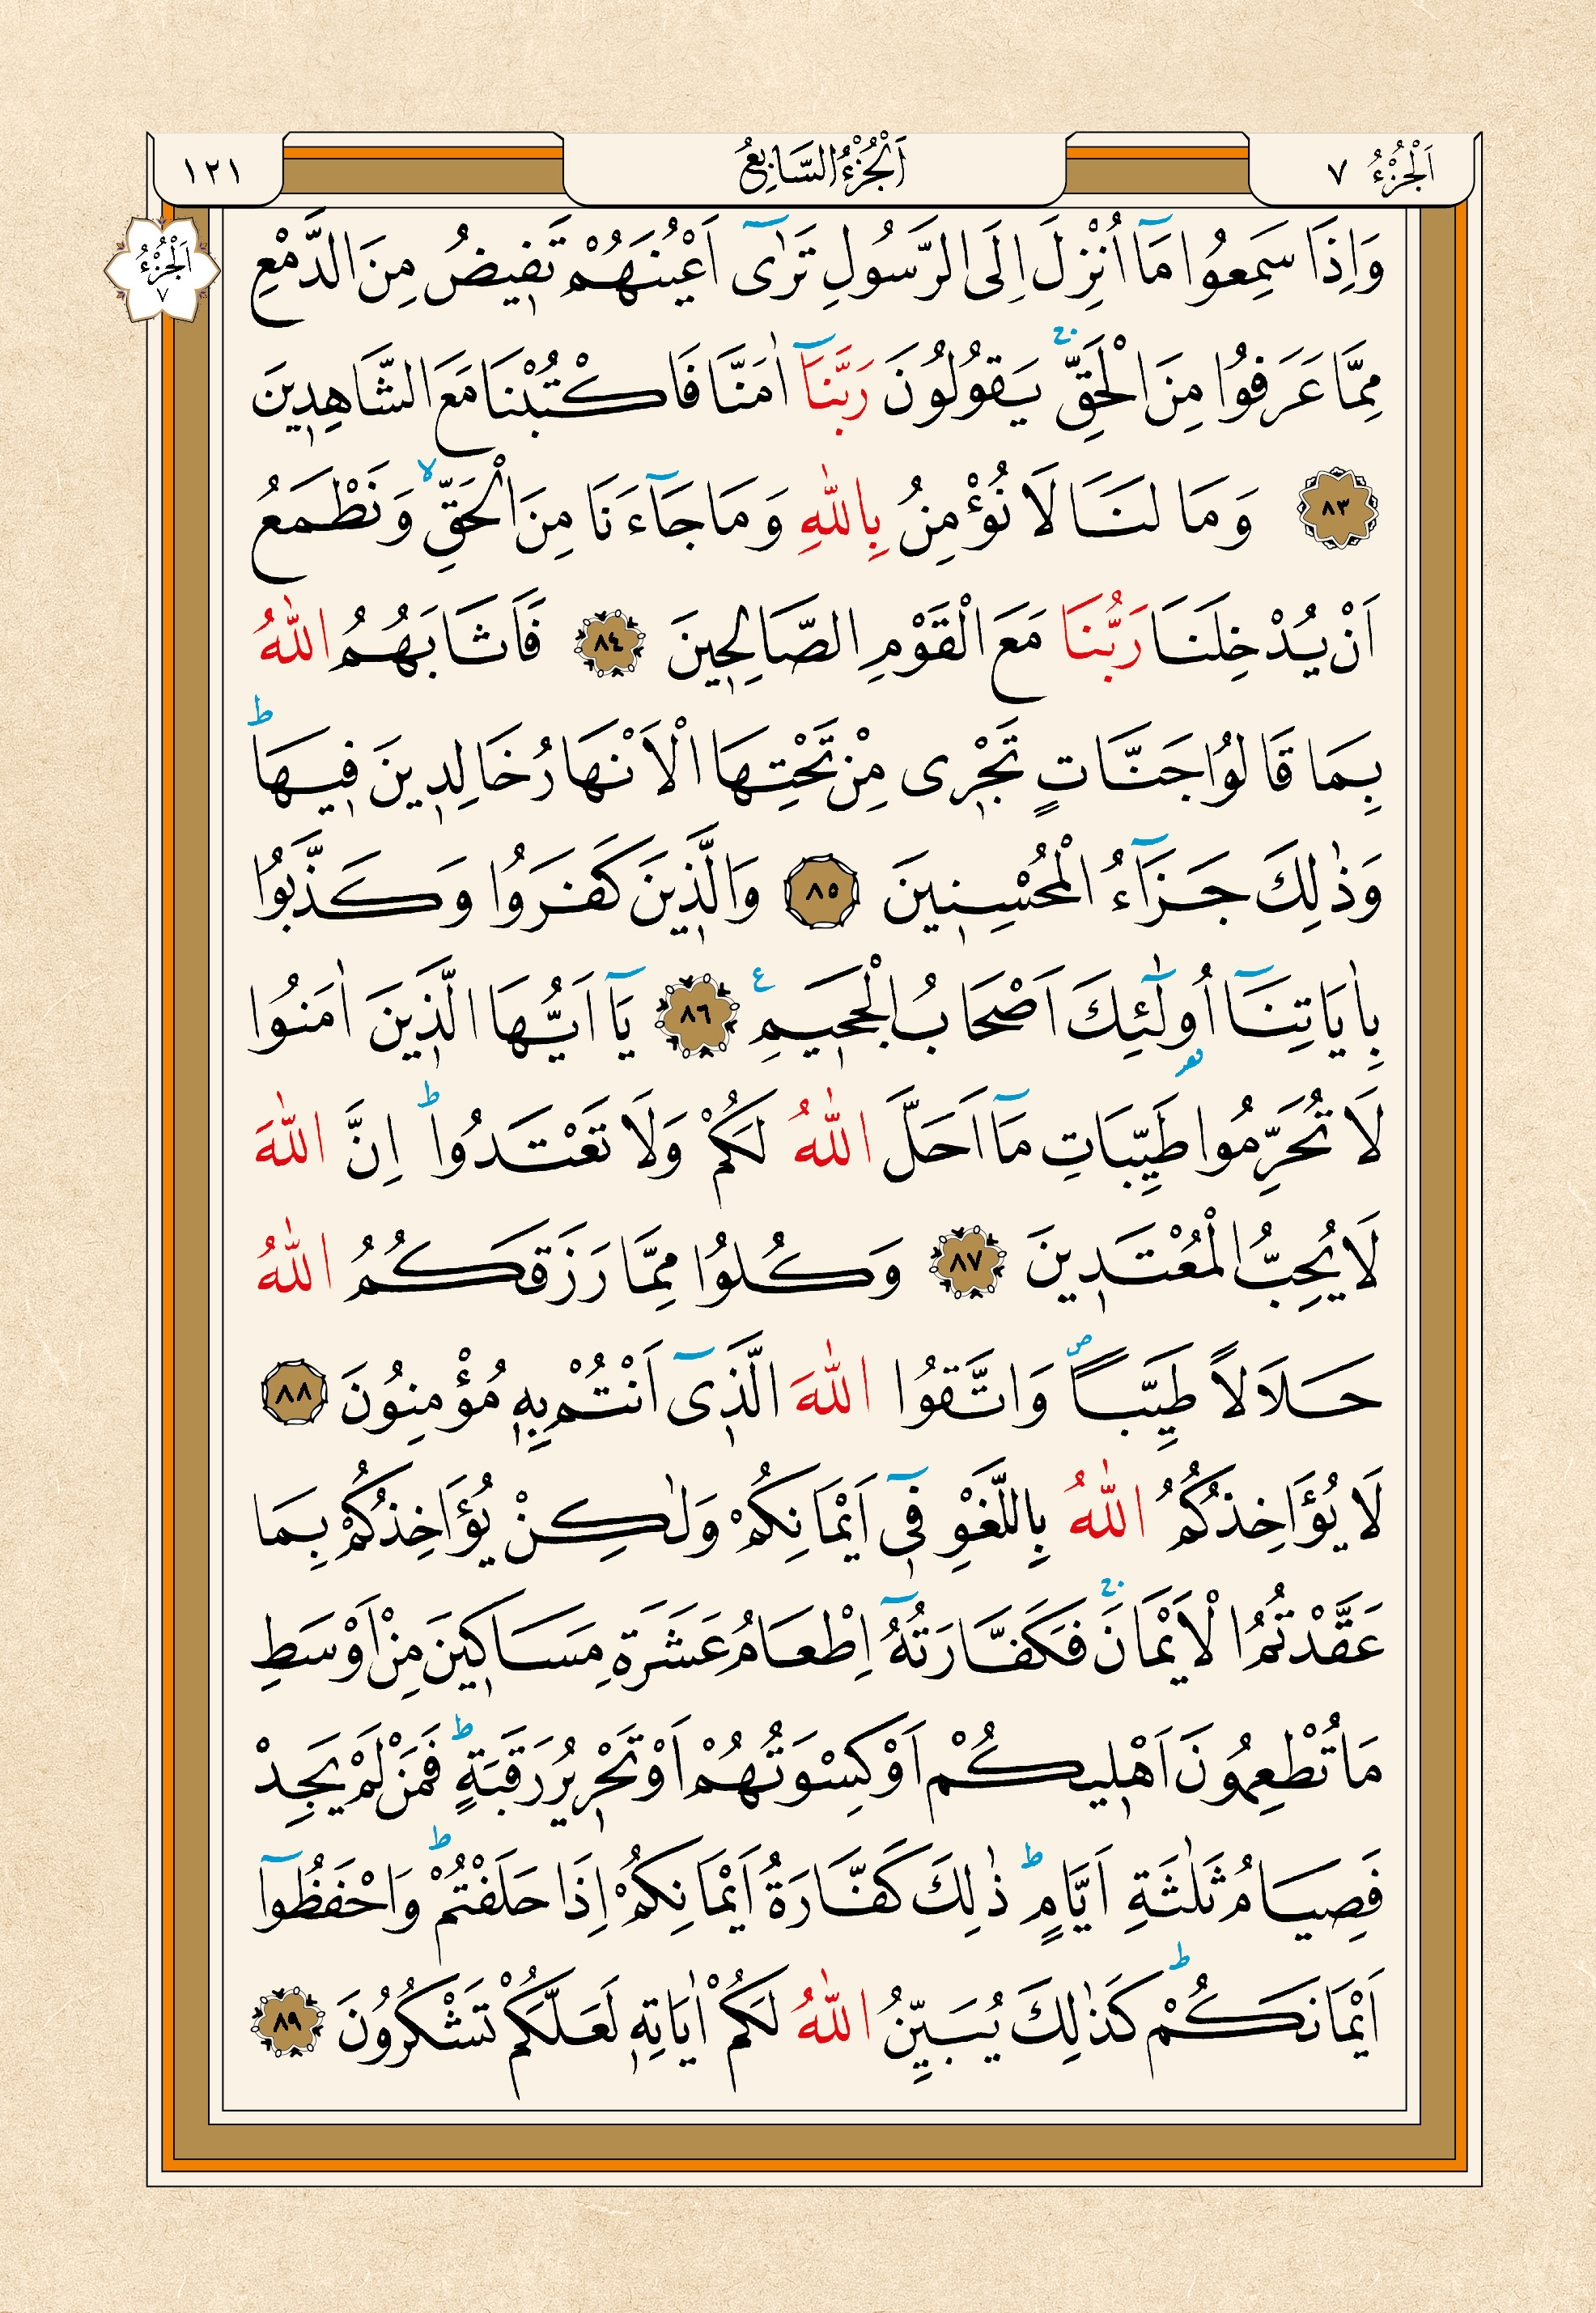 اَلْجُزْءُ ٧
اَلْجُزْءُ السَّابِعُ
١٢١
اَلْجُزْءُ
٧
وَاِذَا سَمِعُوا مَٓا اُنْزِلَ اِلَى الرَّسُولِ تَرٰٓى اَعْيُنَهُمْ تَف۪يضُ مِنَ الدَّمْعِ
مِمَّا عَرَفُوا مِنَ الْحَقِّۚ يَقُولُونَ رَبَّنَٓا اٰمَنَّا فَاكْتُبْنَا مَعَ الشَّاهِد۪ينَ
٨٣ وَمَا لَنَا لَا نُؤْمِنُ بِاللّٰهِ وَمَا جَٓاءَنَا مِنَ الْحَقِّۙ وَنَطْمَعُ
اَنْ يُدْخِلَنَا رَبُّنَا مَعَ الْقَوْمِ الصَّالِح۪ينَ ٨٤ فَاَثَابَهُمُ اللّٰهُ
بِمَا قَالُوا جَنَّاتٍ تَجْر۪ى مِنْ تَحْتِهَا الْاَنْهَارُ خَالِد۪ينَ ف۪يهَاۜ
وَذٰلِكَ جَزَٓاءُ الْمُحْسِن۪ينَ ٨٥ وَالَّذ۪ينَ كَفَرُوا وَكَذَّبُوا
بِاٰيَاتِنَٓا اُو۬لٰٓئِكَ اَصْحَابُ الْجَح۪يمِ ع ٨٦ يَٓا اَيُّهَا الَّذ۪ينَ اٰمَنُوا
لَا تُحَرِّمُوا طَيِّبَاتِ مَٓا اَحَلَّ اللّٰهُ لَكُمْ وَلَا تَعْتَدُواۜ اِنَّ اللّٰهَ
لَا يُحِبُّ الْمُعْتَد۪ينَ ٨٧ وَكُلُوا مِمَّا رَزَقَكُمُ اللّٰهُ
حَلَالاً طَيِّباًۖ وَاتَّقُوا اللّٰهَ الَّذ۪ٓى اَنْتُمْ بِه۪ مُؤْمِنُونَ ٨٨
لَا يُؤَاخِذُكُمُ اللّٰهُ بِاللَّغْوِ ف۪ٓى اَيْمَانِكُمْ وَلٰكِنْ يُؤَاخِذُكُمْ بِمَا
عَقَّدْتُمُ الْاَيْمَانَۚ فَكَفَّارَتُهُٓ اِطْعَامُ عَشَرَةِ مَسَاك۪ينَ مِنْ اَوْسَطِ
مَا تُطْعِمُونَ اَهْل۪يكُمْ اَوْ كِسْوَتُهُمْ اَوْ تَحْر۪يرُ رَقَبَةٍۜ فَمَنْ لَمْ يَجِدْ
فَصِيَامُ ثَلٰثَةِ اَيَّامٍۜ ذٰلِكَ كَفَّارَةُ اَيْمَانِكُمْ اِذَا حَلَفْتُمْۜ وَاحْفَظُٓوا
اَيْمَانَكُمْۜ كَذٰلِكَ يُبَيِّنُ اللّٰهُ لَكُمْ اٰيَاتِه۪ لَعَلَّكُمْ تَشْكُرُونَ ٨٩